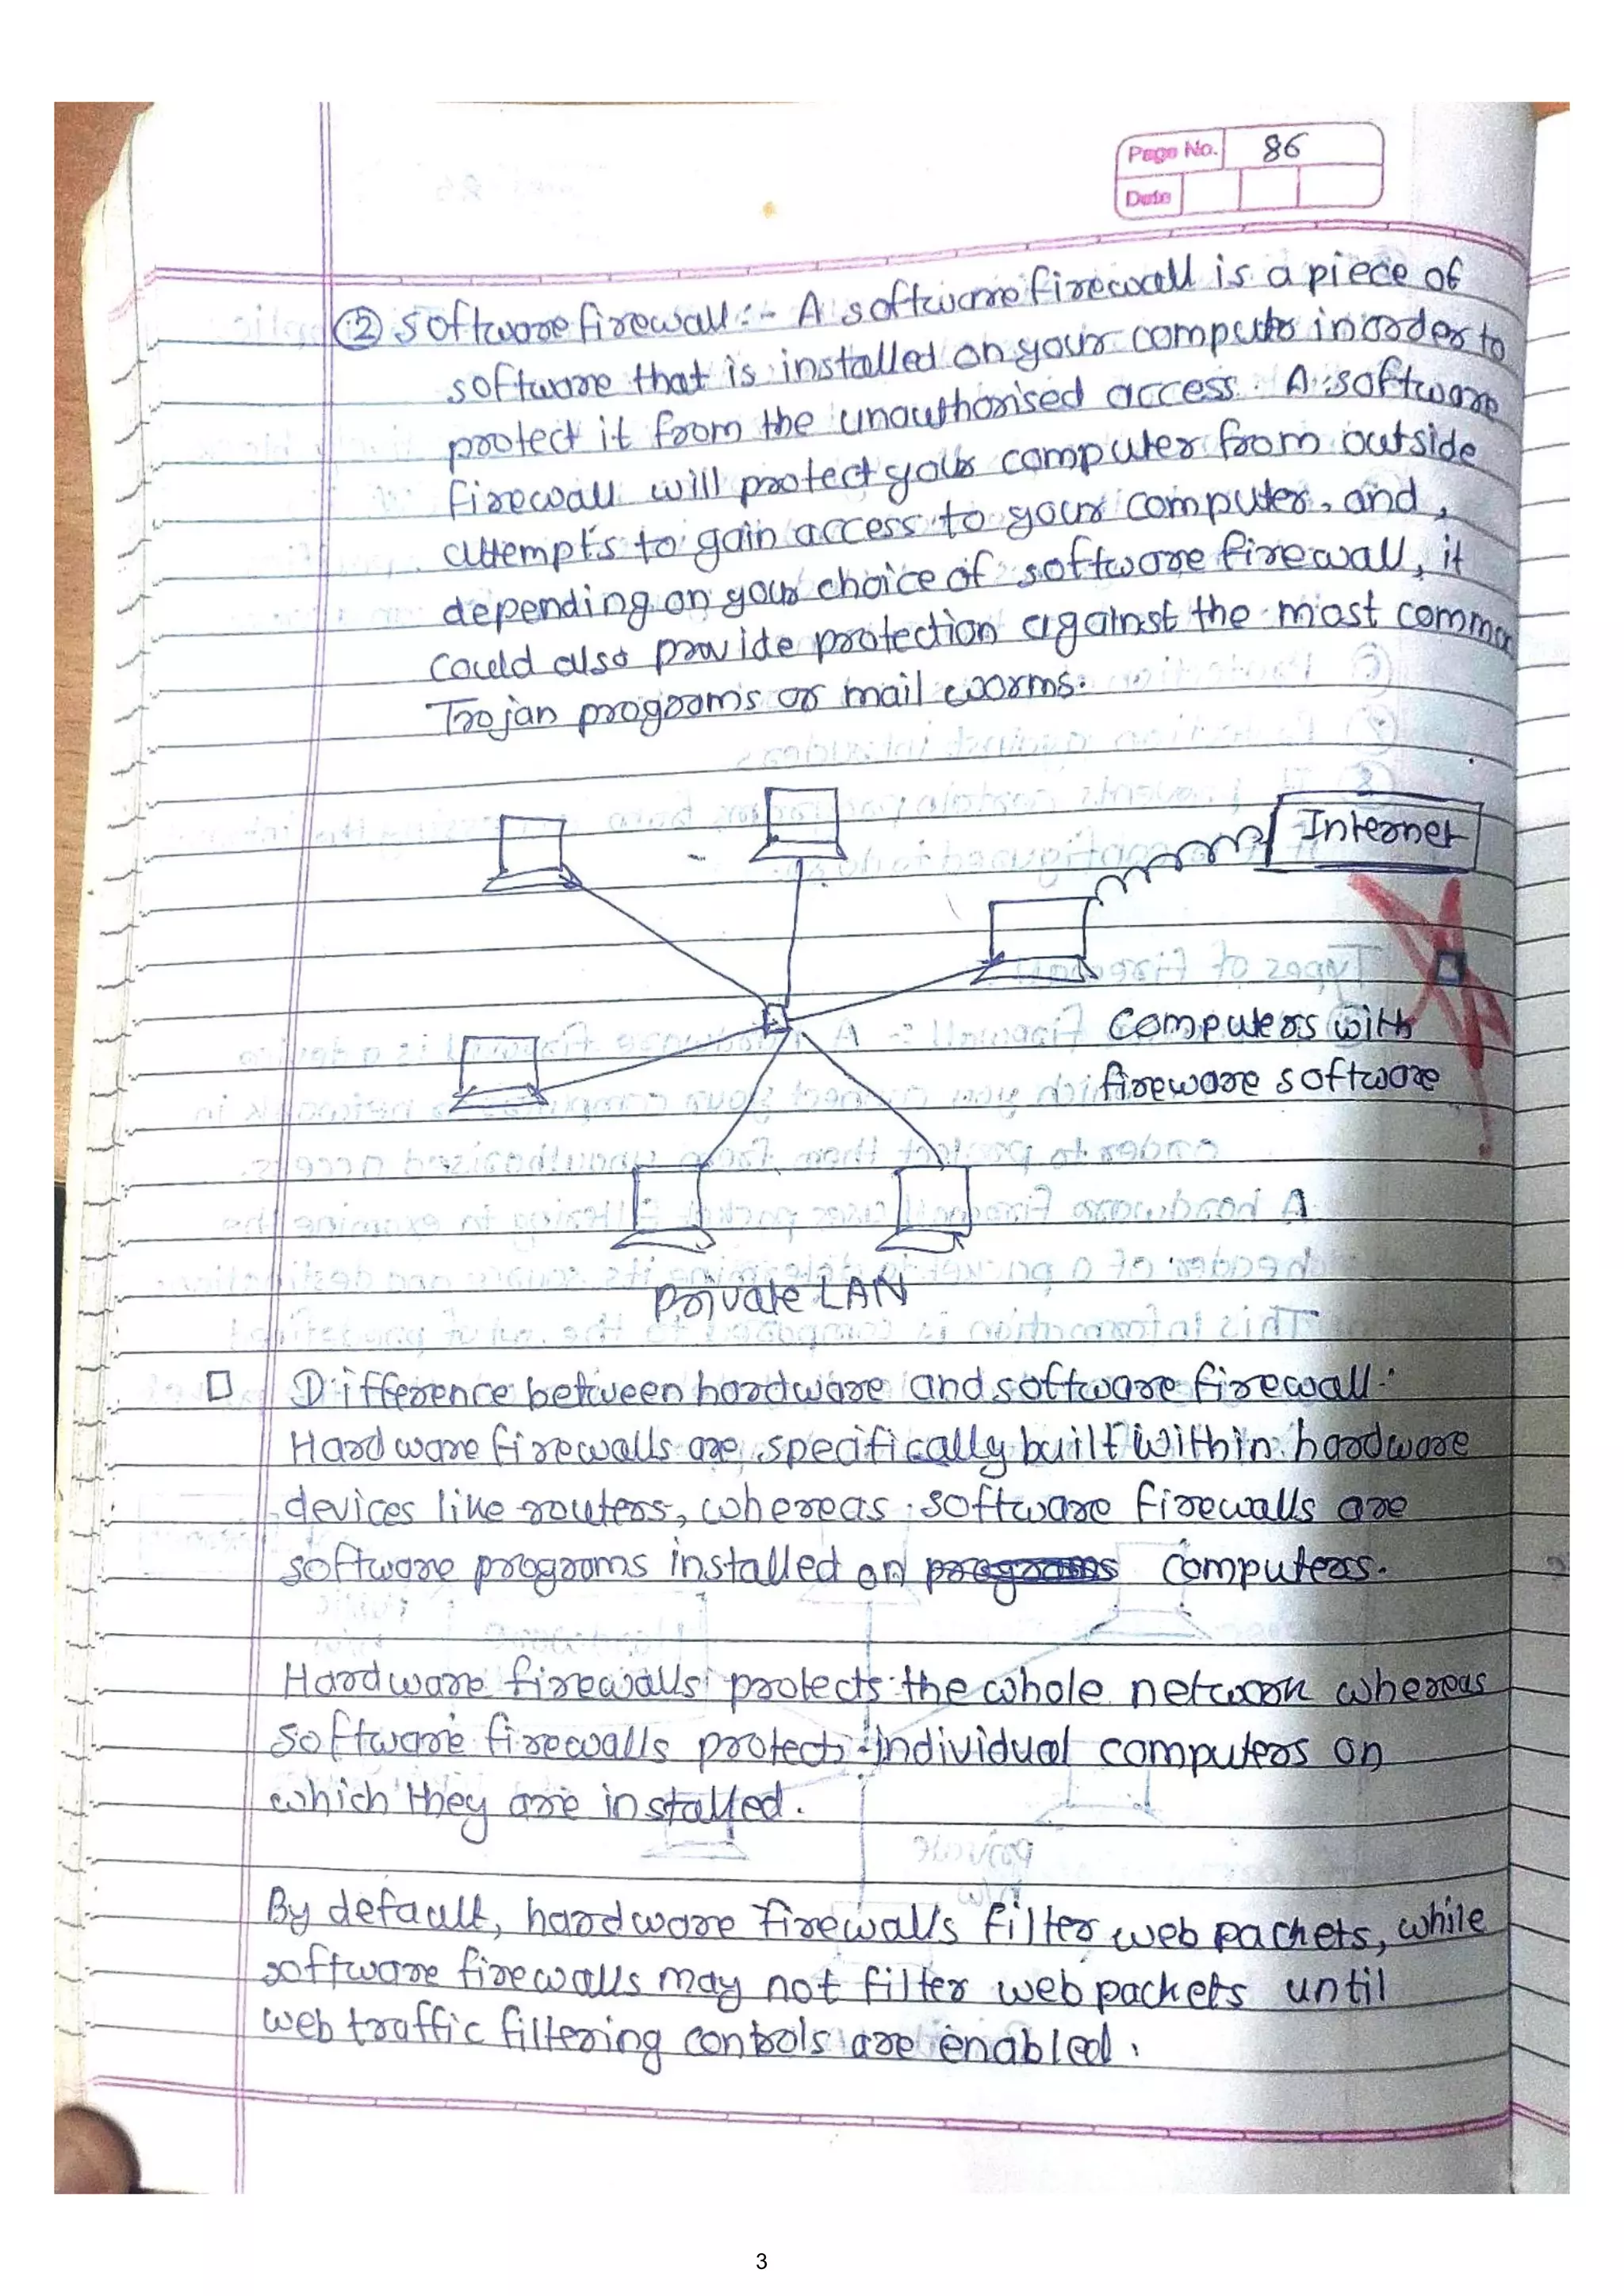 Page No. 86
Date
② Software firewall :- A software firewall is a piece of
software that is installed on your computer inorder to
protect it from the unauthorised access. A software
firewall will protect your computer from outside
attempts to gain access to your computer, and,
depending on your choice of software firewall, it
could also provide protection against the most common
Trojan programs or mail worms.
Internet
Computers with
fireware software
Private LAN
□ Difference between hardware and software firewall.
Hardware firewalls are specifically built within hardware
devices like routers, whereas software firewalls are
software programs installed on programs computers.
Hardware firewalls protects the whole network whereas
software firewalls protects individual computers on
which they are installed.
By default, hardware firewalls filter web packets, while
software firewalls may not filter web packets until
web traffic filtering controls are enabled.
3